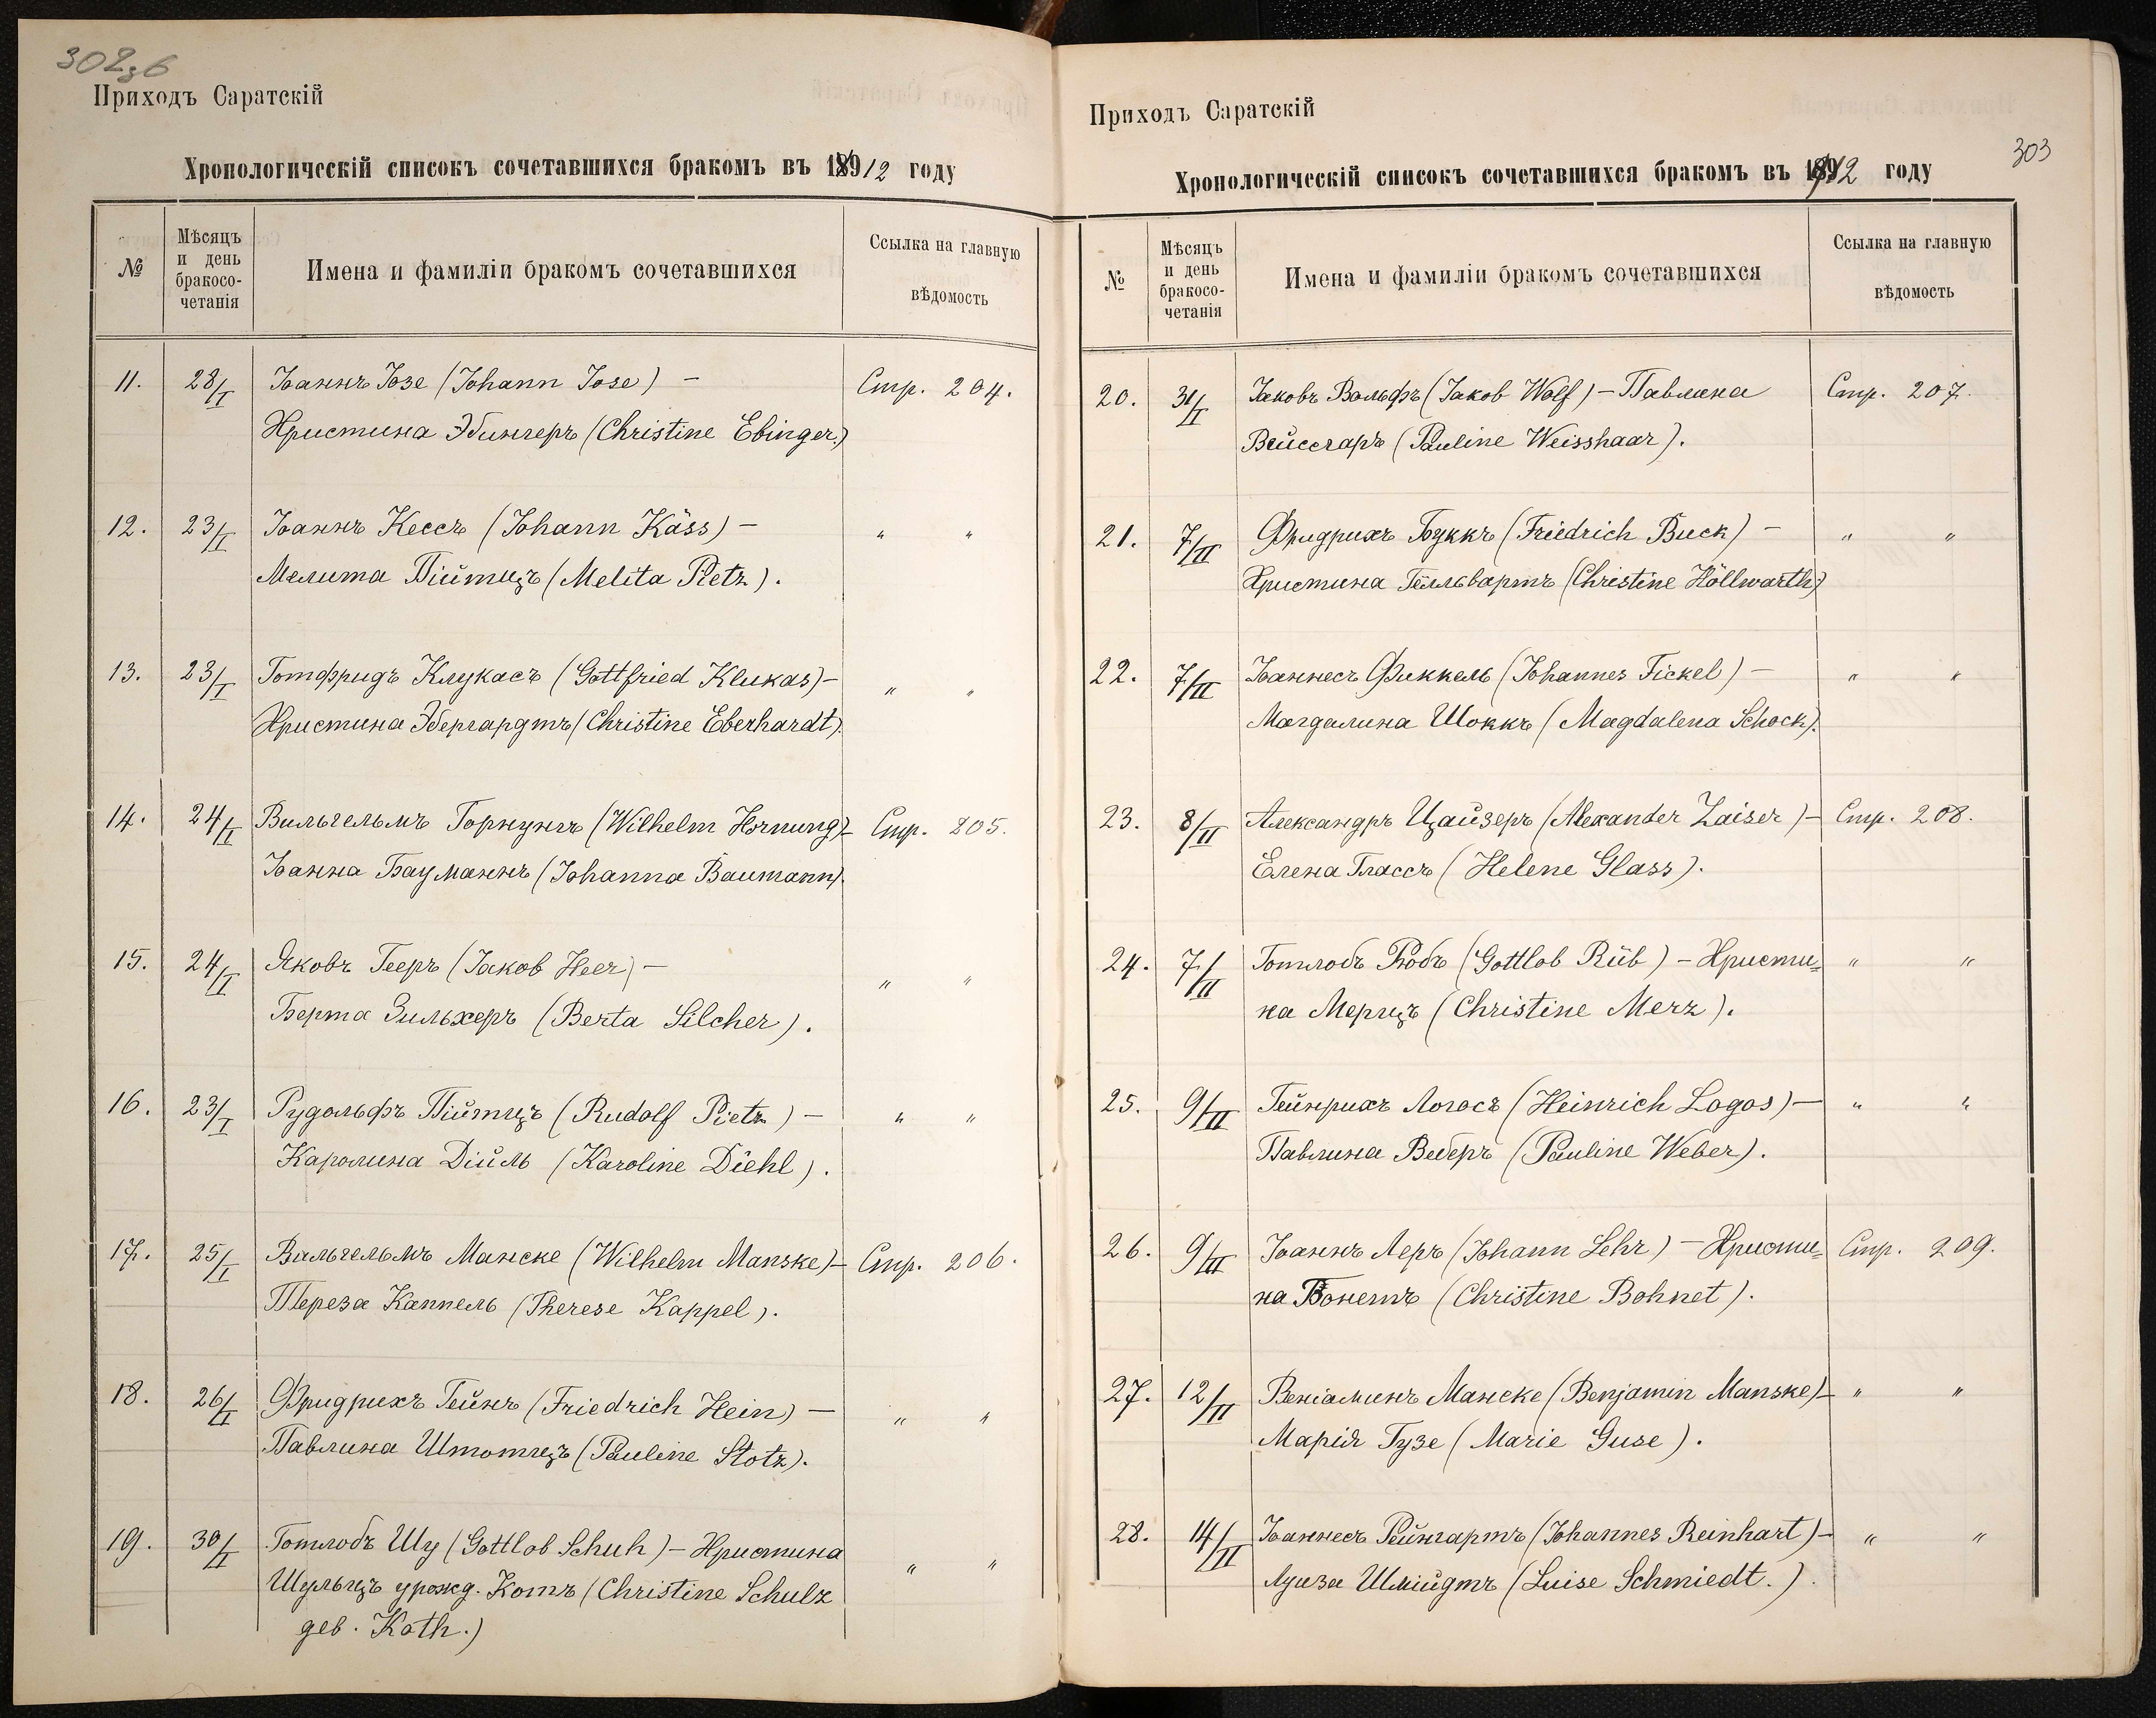 302зв
Приходъ Саратскій
Хронологическій списокъ сочетавшихся бракомъ въ 1912 году
№
Мѣсяцъ
и день
бракосо-
четанія
Имена и фамиліи бракомъ сочетавшихся
Ссылка на главную
вѣдомость
11. 28/I Іоаннъ Іозе (Johann Jose) – Стр. 204.
Христина Эбингеръ (Christine Ebinger.)
12. 23/I Іоаннъ Кессъ (Johann Käss) – " "
Мелита Пійтцъ (Melita Pietz).
13. 23/I Готфридъ Клукасъ (Gottfried Klukas) – " "
Христина Эбергардтъ (Christine Eberhardt).
14. 24/I Вильгельмъ Горнунгъ (Wilhelm Hornung) – Стр. 205.
Іоанна Бауманнъ (Johanna Baumann).
15. 24/I Яковъ Гееръ (Jakob Heer) – " "
Берта Зильхеръ (Berta Silcher).
16. 23/I Рудольфъ Пійтцъ (Rudolf Pietz) – " "
Каролина Дійль (Karoline Diehl).
17. 25/I Вильгельмъ Манске (Wilhelm Manske) – Стр. 206.
Тереза Каппель (Therese Kappel).
18. 26/I Фридрихъ Гейнъ (Friedrich Hein) – " "
Павлина Штотцъ (Pauline Stotz).
19. 30/I Готлобъ Шу (Gottlob Schuh) – Христина " "
Шульцъ урожд. Котъ (Christine Schulz
geb. Koth.)
Приходъ Саратскій
303
Хронологическій списокъ сочетавшихся бракомъ въ 1912 году
№
Мѣсяцъ
и день
бракосо-
четанія
Имена и фамиліи бракомъ сочетавшихся
Ссылка на главную
вѣдомость
20. 31/I Іаковъ Вольфъ (Jakob Wolf) – Павлина Стр. 207.
Вейссгаръ (Pauline Weisshaar).
21. 7/II Фридрихъ Буккъ (Friedrich Buck) – " "
Христина Гёлльвартъ (Christine Höllwarth)
22. 7/II Іоаннесъ Фиккель (Johannes Fickel) – " "
Магдалина Шоккъ (Magdalena Schock).
23. 8/II Александръ Цайзеръ (Alexander Zaiser) – Стр. 208.
Елена Глассъ (Helene Glass).
24. 7/II Готлобъ Рюбъ (Gottlob Rüb) – Христи= " "
на Мерцъ (Christine Merz).
25. 9/II Гейнрихъ Логосъ (Heinrich Logos) – " "
Павлина Веберъ (Pauline Weber).
26. 9/II Іоаннъ Леръ (Johann Lehr) – Христи= Стр. 209.
на Бонетъ (Christine Bohnet).
27. 12/II Веніаминъ Манске (Benjamin Manske) – " "
Марія Гузе (Marie Guse).
28. 14/II Іоаннесъ Рейнгартъ (Johannes Reinhart) – " "
Луиза Шмійдтъ (Luise Schmiedt.).